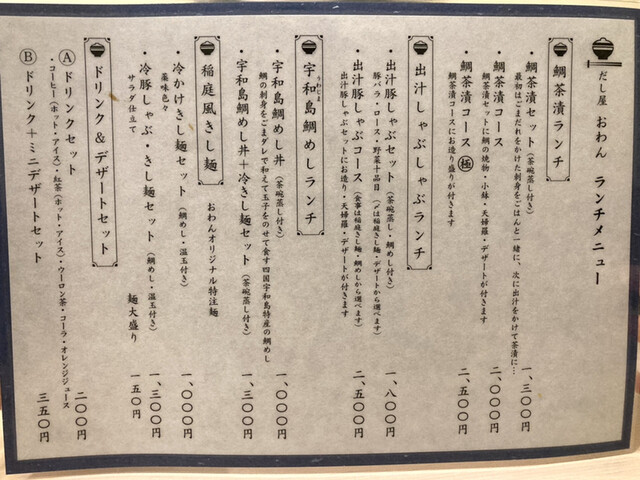 だし屋 おわん ランチメニュー
鯛茶漬ランチ
・鯛茶漬セット(茶碗蒸し付き) 一、三〇〇円
最初はごまだれをかけた刺身をごはんと一緒に、次に出汁をかけて茶漬に…
・鯛茶漬コース 二、〇〇〇円
鯛茶漬セットに鯛の焼物・小鉢・天婦羅・デザートが付きます
・鯛茶漬コース 極 二、五〇〇円
鯛茶漬コースにお造り盛りが付きます
出汁しゃぶしゃぶランチ
・出汁豚しゃぶセット(茶碗蒸し・鯛めし付き) 一、八〇〇円
豚バラ・ロース・野菜十品目(〆は稲庭きし麺・デザートから選べます)
・出汁豚しゃぶコース(食事は稲庭きし麺・鯛めしから選べます) 二、五〇〇円
出汁豚しゃぶセットにお造り・天婦羅・デザートが付きます
宇和島鯛めしランチ
うわじま
・宇和島鯛めし丼(茶碗蒸し付き) 一、〇〇〇円
鯛の刺身をごまダレで和えて玉子をのせて食す四国宇和島特産の鯛めし
・宇和島鯛めし丼+冷きし麺セット(茶碗蒸し付き) 一、三〇〇円
稲庭風きし麺 おわんオリジナル特注麺
・冷かけきし麺セット(鯛めし・温玉付き) 一、〇〇〇円
薬味色々
・冷豚しゃぶ・きし麺セット(鯛めし・温玉付き) 一、三〇〇円
サラダ仕立て 麺大盛り 一五〇円
ドリンク&デザートセット
Ⓐドリンクセット 二〇〇円
・コーヒー(ホット・アイス)・紅茶(ホット・アイス)・ウーロン茶・コーラ・オレンジジュース
Ⓑドリンク+ミニデザートセット 三五〇円